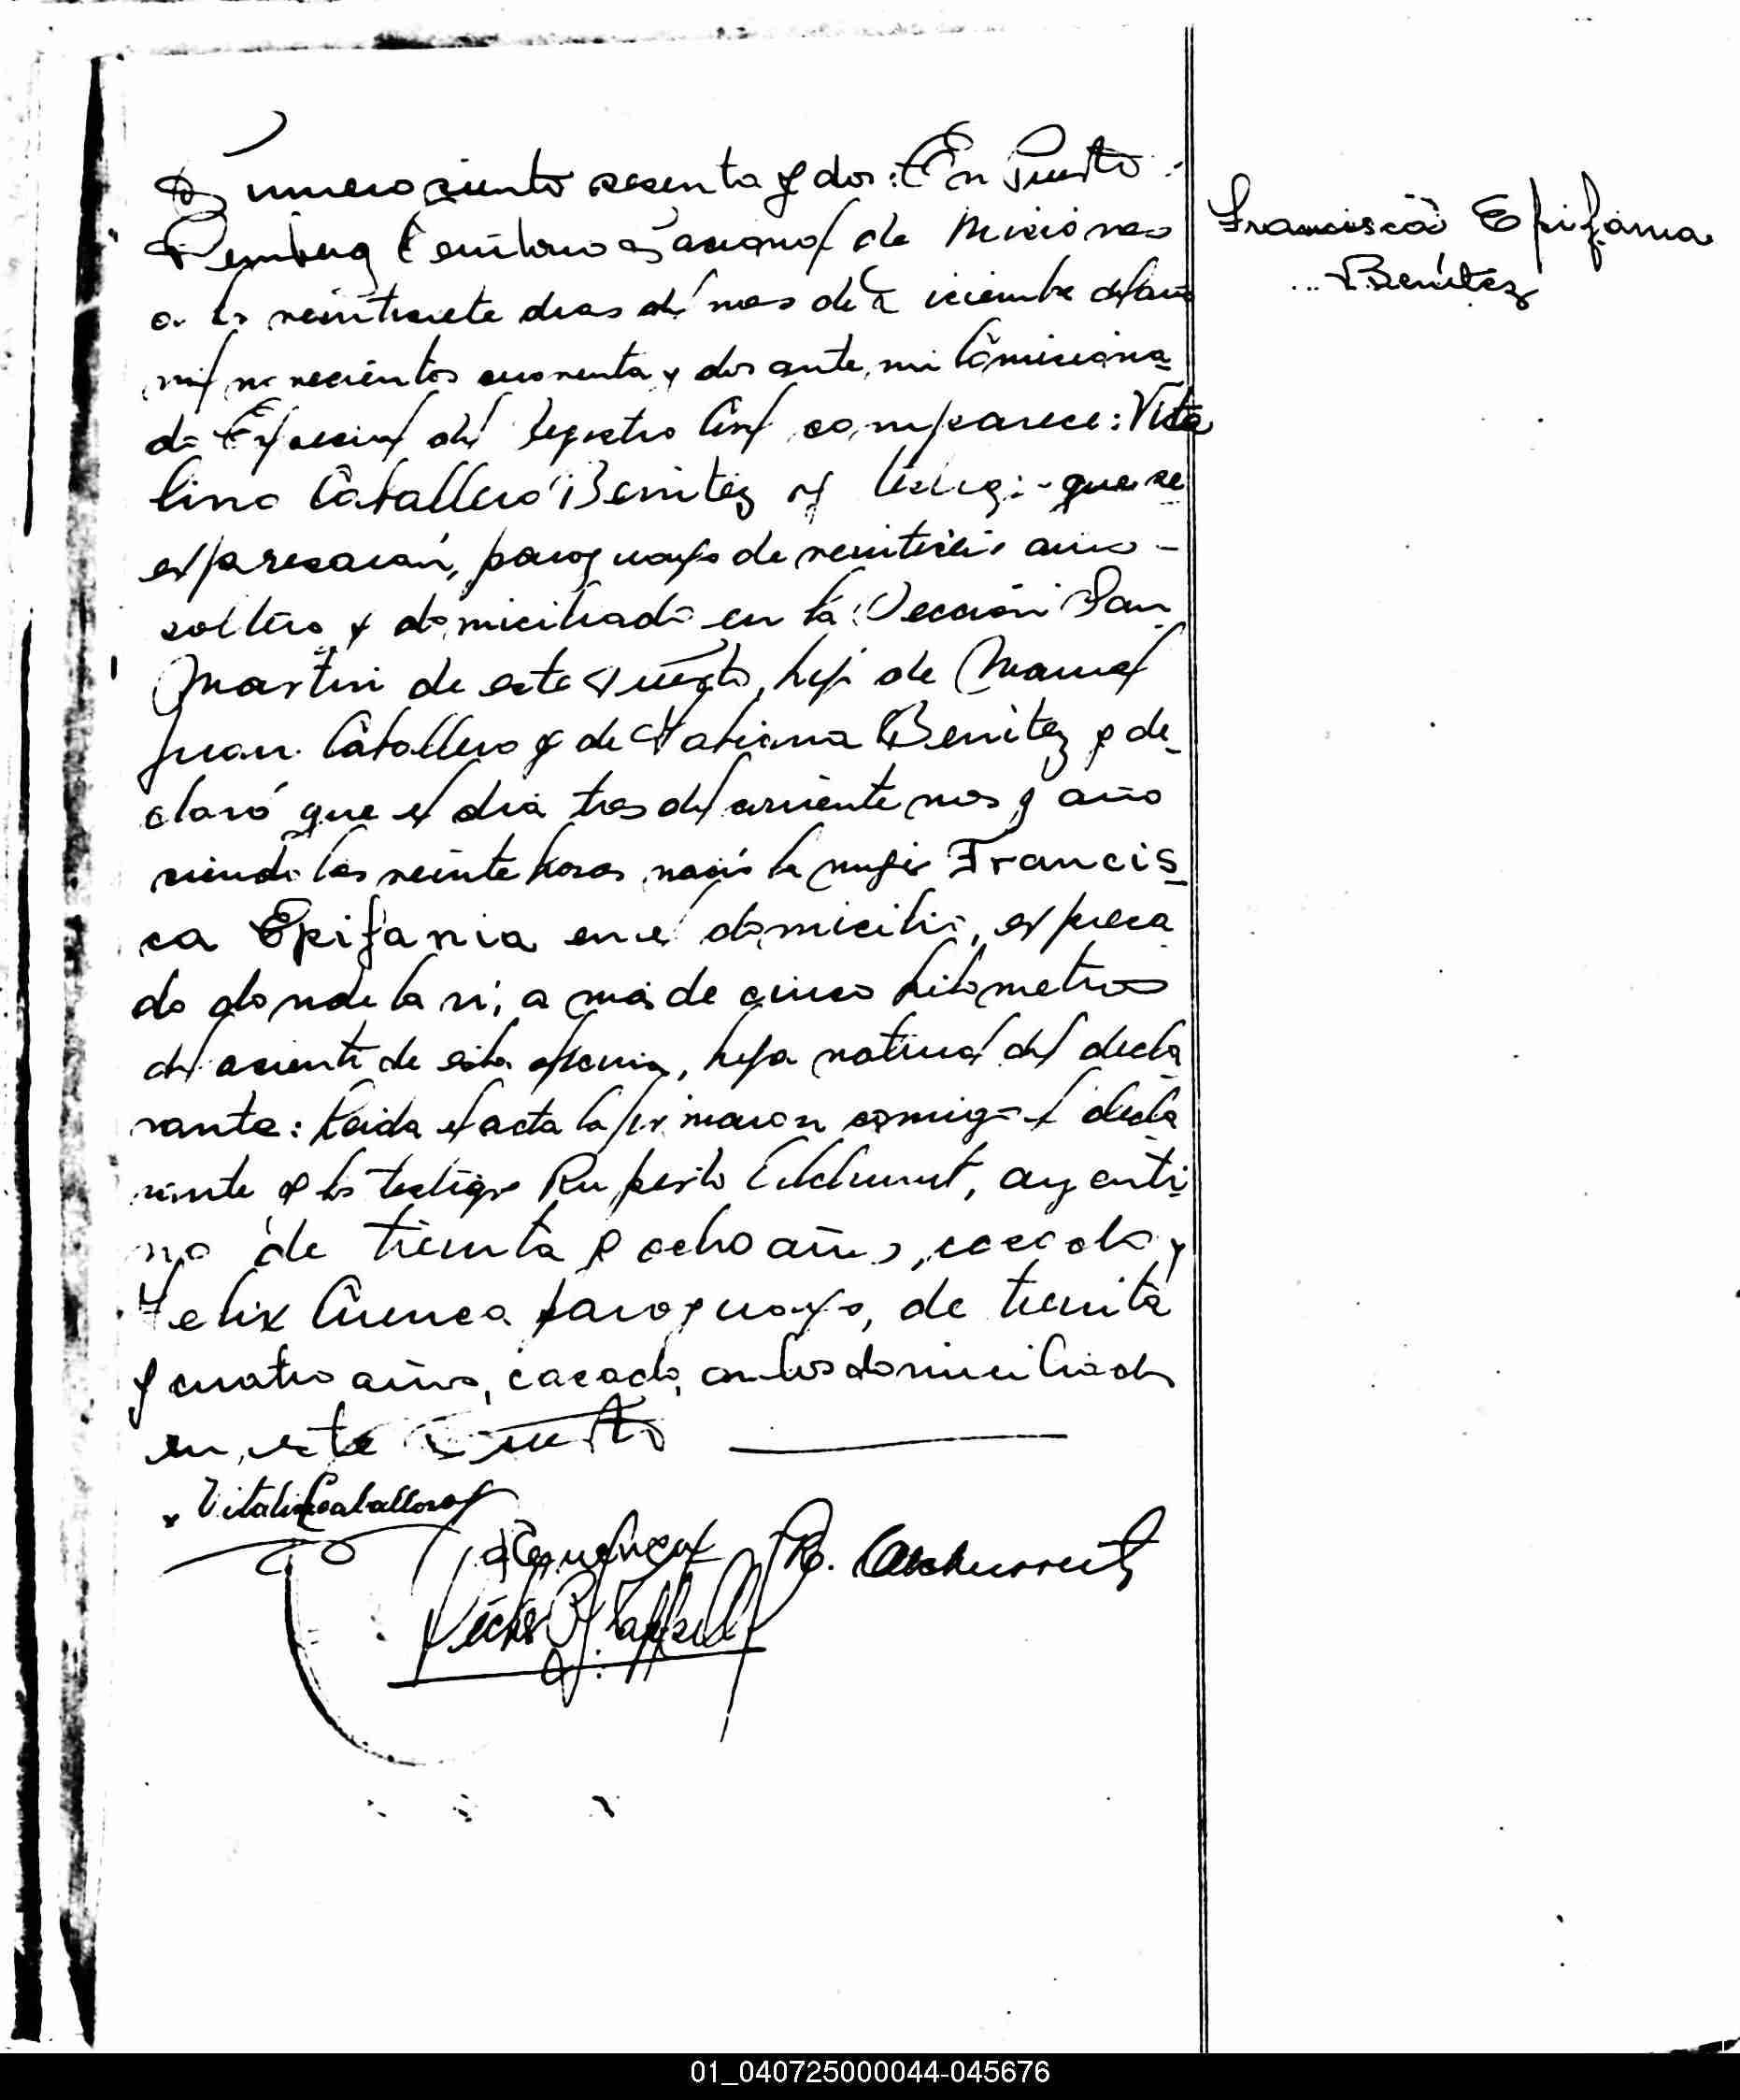 Numero ciento sesenta y dos: En Puerto
Francisca Epifania
Benítez
Territorio Nacional de Misiones
a los veintisiete dias del mes de Diciembre del año
mil novecientos cuarenta y dos ante mi Comisiona
do Especial del Registro Civil comparece: Vita
lino Caballero Benitez y testigos que se
expresarán, paraguayo de veintiseis años
soltero y domiciliado en la Sección San
Martin de este Puerto, hijo de Manuel
Juan Caballero y de Fabiana Benitez y de
claró que el dia tres del corriente mes y año
siendo las veinte horas nació la mujer Francis
ca Epifania en el domicilio, expresa
do donde la vi, a más de cinco kilometros
del asiento de esta oficina, hija natural del decla
rante: Leida el acta la firmaron conmigo el decla
rante y los testigos Ruperto argenti
no de treinta y ocho años, casado y
Felix Cuenca paraguayo, de treinta
y cuatro años, casado, ambos domiciliados
en este Puerto
Vitalino Caballero
R.
01_040725000044-045676